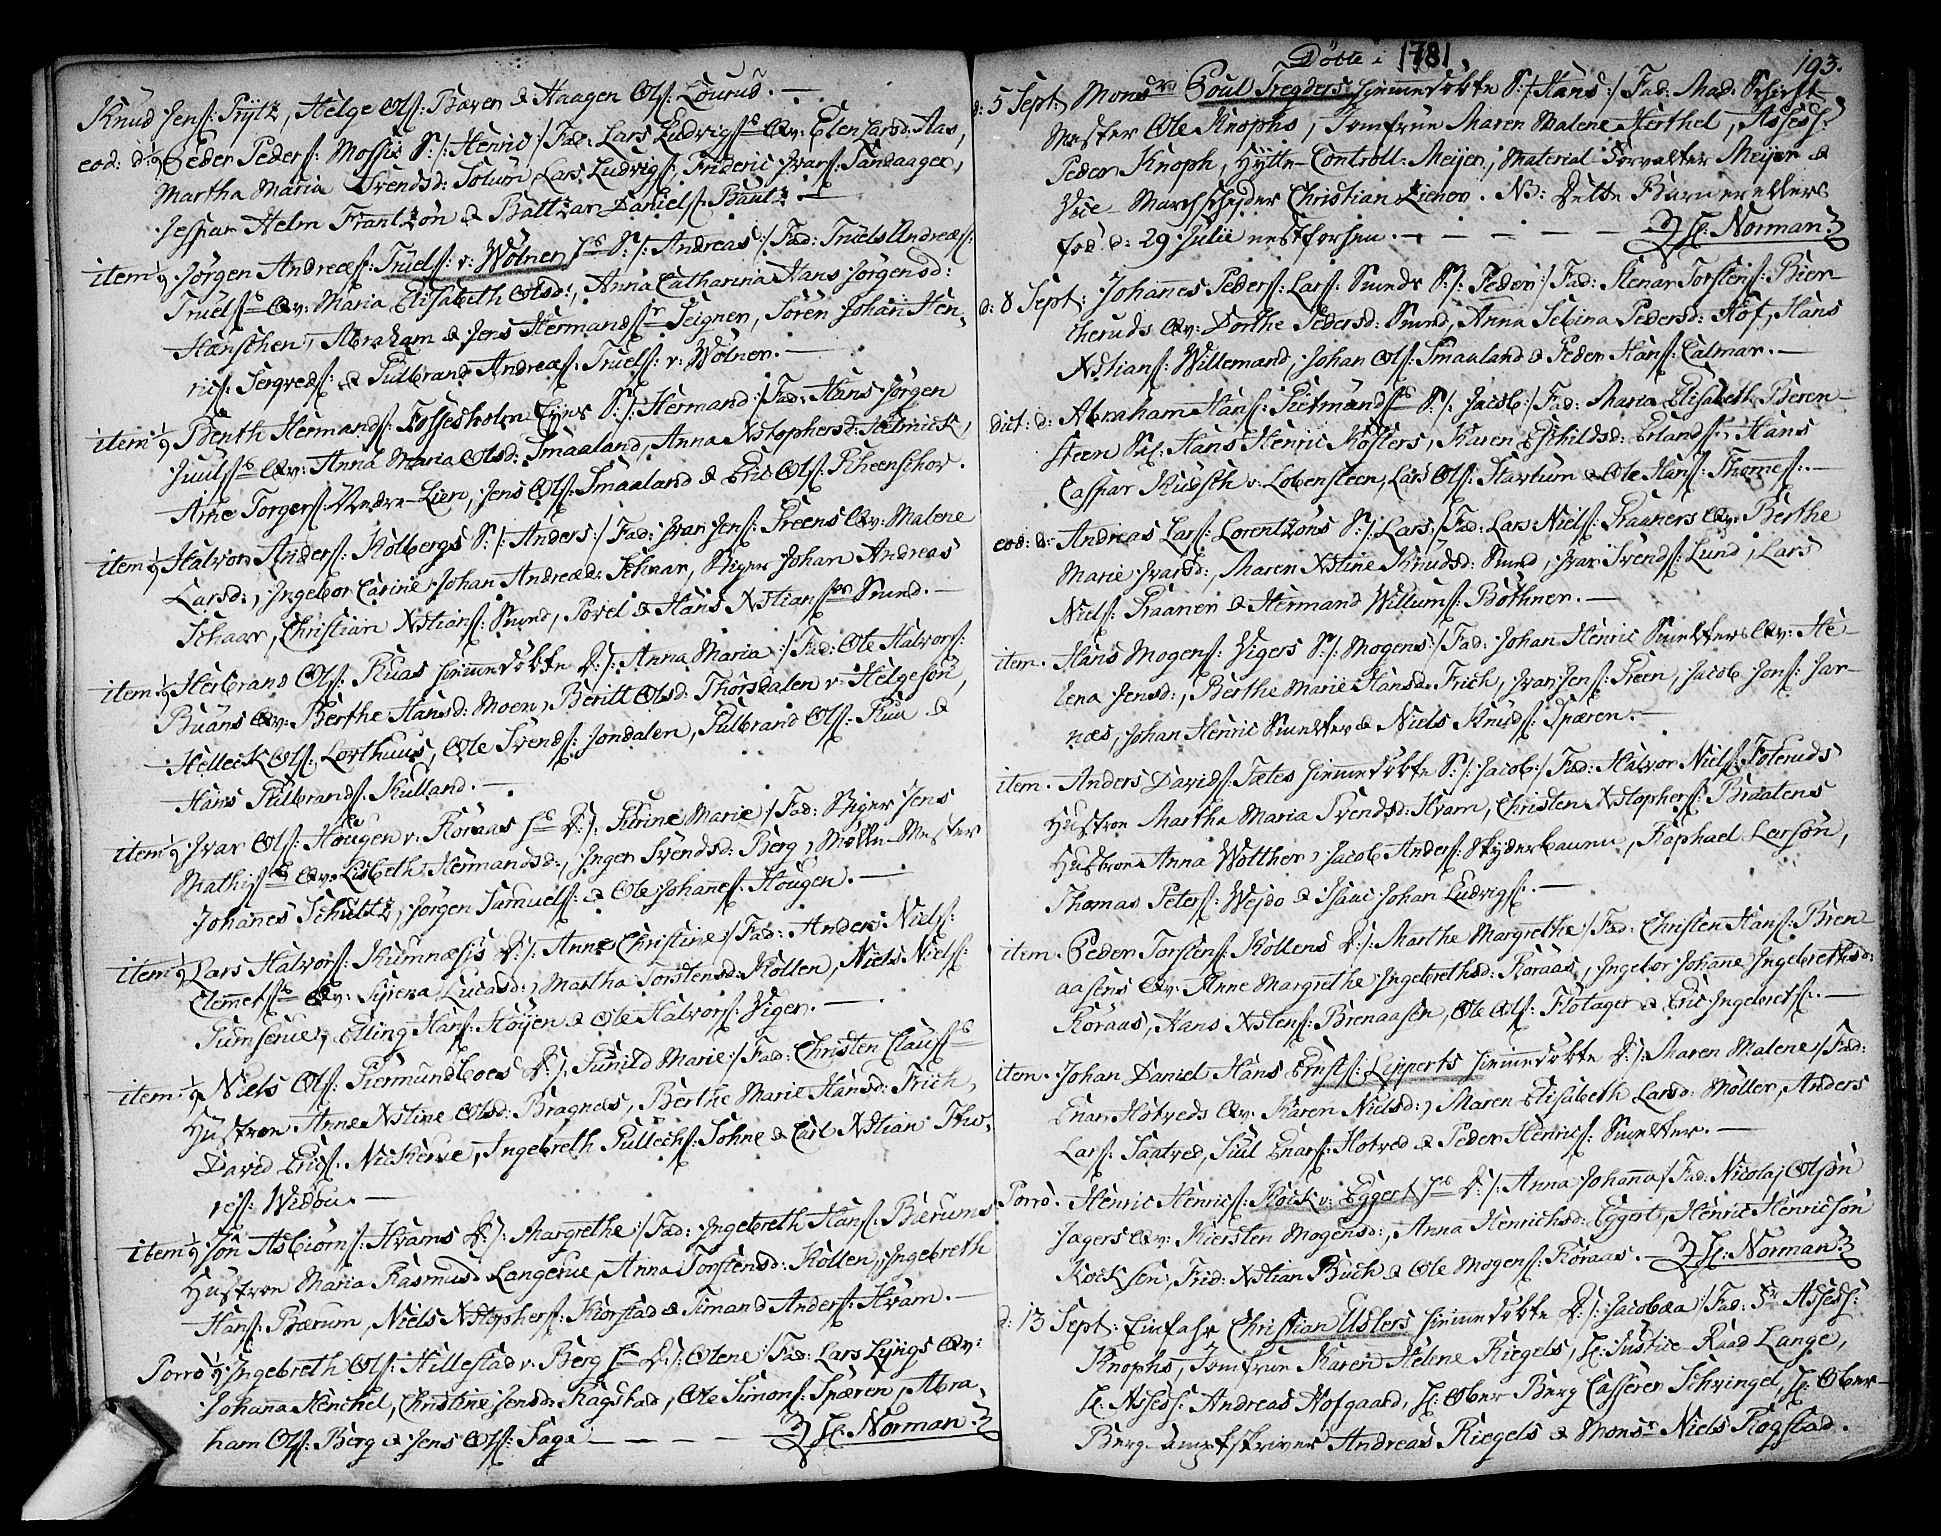 Knud Jens: Pytz, Helge Ols: Baver & Haagen Ols: Lourud. —
eod: d: Peder Peders: Mossis S:/: Henric :/ Fad: Lars Ludvigss Qv: Elen Larsd: Aas,
Martha Maria Svendsd: Solum, Lars Ludvigs:, Frideric Ivars: Sandaager,
Jesper Helm Frantzön & Baltzar Daniels: Bautz —
item Jörgen Andreæs: Truels: v: Wölner S:/: Andreas :/ Fad: Truels Andreæs:
Truelss Qv: Maria Elisabeth Olsd:, Anna Catharina Hans Jörgensd:
Hænschen, Abraham & Jens Hermandss Teigner, Sören Johan Hen-
rics: Serqveds: & Gulbrand Andreæs: Truels: v: Wölner. —
item Benth Hermands: Fossesholm Eyers S:/: Hermand :/ Fad: Hans Jörgen
Juulss Qv: Anna Maria Olsd: Smaaland, Anna Xstophersd: Helmick,
Arne Torgers: Nedre-Lien, Jens Ols: Smaaland & Eric Ols: Rheenschov.
item Halvor Anders: Kolbergs S:/: Anders :/ Fad: Ivar Jens: Preens Qv: Malene
Larsd:, Ingebor Carine Johan Andreæd: Schaar, Stiger Johan Andreas
Schaar, Christian Xstians: Sund, Povel & Hans Xstians: Sund. —
item Herbrand Ols: Ruas hiemmedöbte D:/: Anna Maria :/ Fad: Ole Halvors:
Buans Qv: Berthe Hansd: Moen, Beritt Olsd: Thorsdalen v: Helgesön,
Helleck Ols: Lorthuus, Ole Svends: Jondalen, Gulbrand Ols: Rua &
Hans Gulbrands: Kulland. —
item Ivar Ols: Hougen v: Koraas D:/: Gurine Marie :/ Fad: Stiger Jens
Mathiss Qv: Lisbeth Hermandsd:, Inger Svendsd: Berg, Mölle-Mester
Johanes Schultz, Jörgen Samuels: & Ole Johanes: Hougen. —
item Lars Halvors: Rumnæsis D:/: Anne Christine :/ Fad: Anders Niels:
Clemetss Qv: Syrena Lucasd:, Martha Torstensd: Kollen, Niels Niels:
Gunserue, Elling Hans: Höyen & Ole Halvors: Viger. —
item Niels Ols: Giermundboes D:/: Gunild Marie :/ Fad: Christen Clauss
Hustroe Anne Xstine Olsd: Bragnæs, Berthe Marie Hansd: Frich,
David Erics: Nickerue, Ingebreth Gullechs: Sohne & Carl Xstian Tho-
res: Widbu. —
item Jön Asbiörns: Hvams D:/: Margrethe :/ Fad: Ingebreth Hans: Bærums
Hustroe Maria Rasmusd: Langerue, Anna Torstensd: Kollen, Ingebreth
Hans: Bærum, Niels Xstophers: Kiörstad & Simand Anders: Hvam. —
Porrò Ingebreth Ols: Hillestad v: Berg D:/: Olene :/ Fad: Lars Lyngs Qv:
Johanna Henchel, Christine Jensd: Ragstad, Ole Simons: Spæren, Abra-
ham Ols: Berg & Jens Ols: Sage — — — H: Norman
Döbte i 1781. 193.
d: 5 Sept: Monsr Poul Tregders hiemmedöbte S:/: Hans :/ Fad: Mad: Schift-
Mester Ole Knophs, Jomfrue Maren Malene Herthel, Assess:
Peder Knoph, Hytte-Controll: Meyer, Material Forvalter Meyer &
Vice-Marchschejder Christian Lienov. NB: Dette Barn er ellers
föd d: 29 Julii nestforhen. — — — — H: Norman
d: 8 Sept: Johannes Peders: Lars: Sunds S:/: Peder :/ Fad: Stenar Torstens: Bier-
cheruds Qv: Dorthe Pedersd: Sund, Anna Sebina Pedersd: Hof, Hans
Xstians: Willemand, Johan Ols: Smaaland & Peder Hans: Calmar. —
dict: d: Abraham Hans: Peitmandss S:/: Jacob :/ Fad: Maria Elisabeth Beren-
steen Sal: Hans Henric Kösters, Karen Eschildsd: Erlands:, Hans
Caspar Kudsch v: Lobensteen, Lars Ols: Stavlum & Ole Hans: Thomes: —
eod: d: Andreas Lars: Lorentzöns S:/: Lars :/ Fad: Lars Niels: Praaners Qv: Berthe
Marie Ivarsd:, Maren Xstine Knudsd: Sund, Ivar Svends: Lund, Lars
Niels: Praaner & Hermand Willums: Böthner. —
item. Hans Mogens: Vigers S:/: Mogens :/ Fad: Johan Henric Smelters Qv: He-
lena Jensd:, Berthe Marie Hansd: Frich, Ivar Jens: Preen, Jacob Jons: Jar-
næs, Johan Henric Smelter & Niels Knuds: Spæren. —
item. Anders Davids: Tates hiemmedöbte S:/: Jacob :/ Fad: Halvor Niels: Foteruds
Hustroe Martha Maria Svendsd: Hvam, Christen Xstophers: Braatens
Hustroe Anna Wolther, Jacob Anders: Skyderbaunu, Raphael Larsön,
Thomas Peters: Wejdo & Isaac Johan Ludvigs: —
item. Peder Torstens: Kollens D:/: Marthe Margrethe :/ Fad: Christen Hans: Bren-
aasens Qv: Anne Margrethe Ingebrethsd: Koraas, Ingebor Johane Ingebrethsd:
Koraas, Hans Xstens: Brenaasen, Ole Ols: Flotager & Eric Ingebrets: —
item. Johan Daniel Hans Ernsts: Lipperts hiemmedöbte D:/: Maren Malene :/ Fad:
Enar Hotveds Qv: Karen Nielsd:, Maren Elisabeth Larsd: Möller, Anders
Lars: Saatved, Juul Enars: Hotved & Peder Henrics: Smelter. —
Porrò. Henric Henrics: Kock v: Eggert D:/: Anna Johanna :/ Fad: Nicolaj Olsön
Jagers Qv: Kiersten Mogensd:, Anna Henrichsd: Eggert, Henric Henricsön
Kock sen:, Frid: Xstian Buch & Ole Mogens: Koraas. — H: Norman
d: 13 Sept: Einfahr Christian Uslers hiemmedöbte D:/: Jacobæa :/ Fad: Fr Assess:
Knophs, Jomfrue Karen Helene Riegels, H: Justice-Raad Lange,
H: Assess: Andreas Hofgaard, H: Ober Berg Casserer Schvingel, H: Ober-
Berg-Amptskriver Andreas Riegels & Monsr Niels Rogstad.